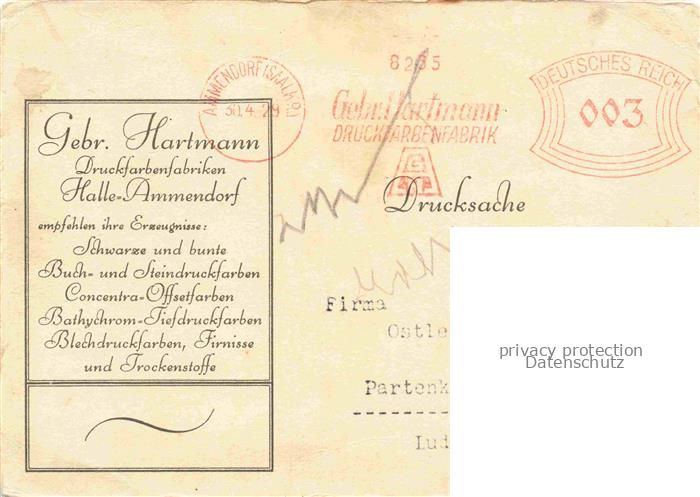 8265
AMMENDORF (SAALKR.)
30.4.29
Gebr. Hartmann
DRUCKFARBENFABRIK
DEUTSCHES REICH
003
Gebr. Hartmann
Druckfarbenfabriken
Halle-Ammendorf
empfehlen ihre Erzeugnisse:
Schwarze und bunte
Buch- und Steindruckfarben
Concentra-Offsetfarben
Bathychrom-Tiefdruckfarben
Blechdruckfarben, Firnisse
und Trockenstoffe
Drucksache
Firma
Ostle
Partenk
Lud
privacy protection
Datenschutz